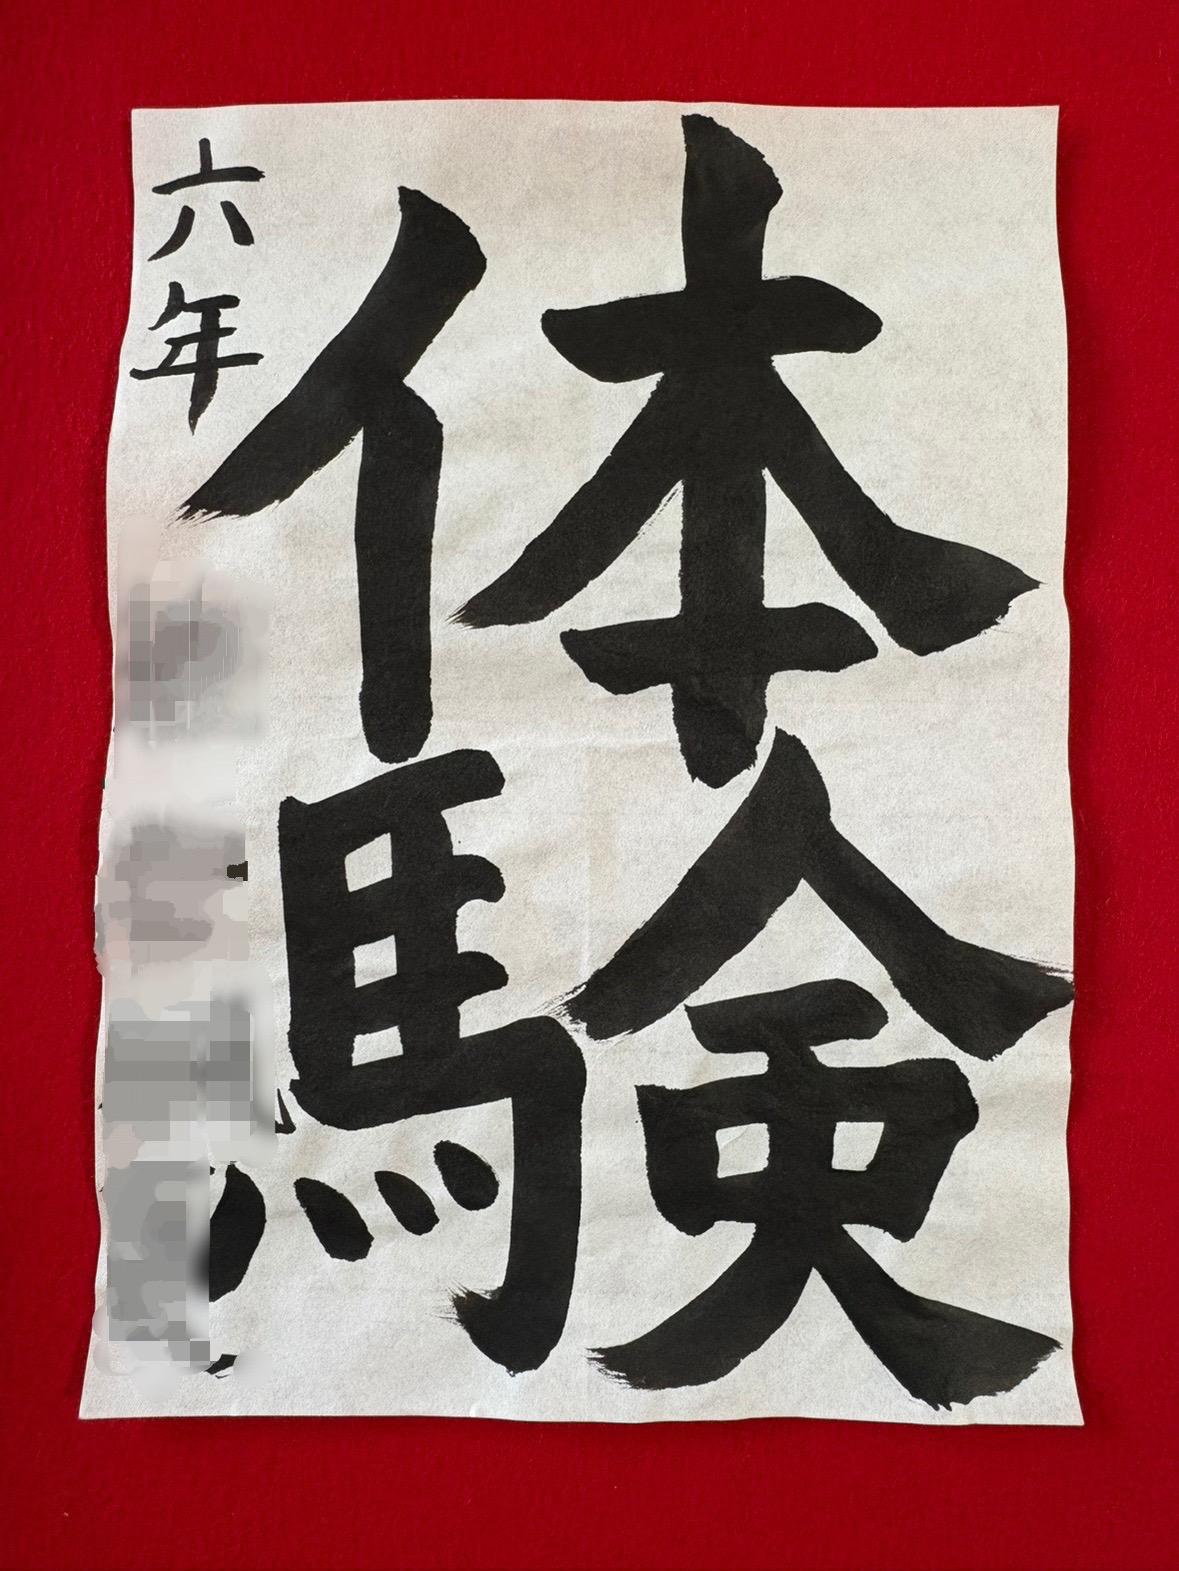 体験
六年